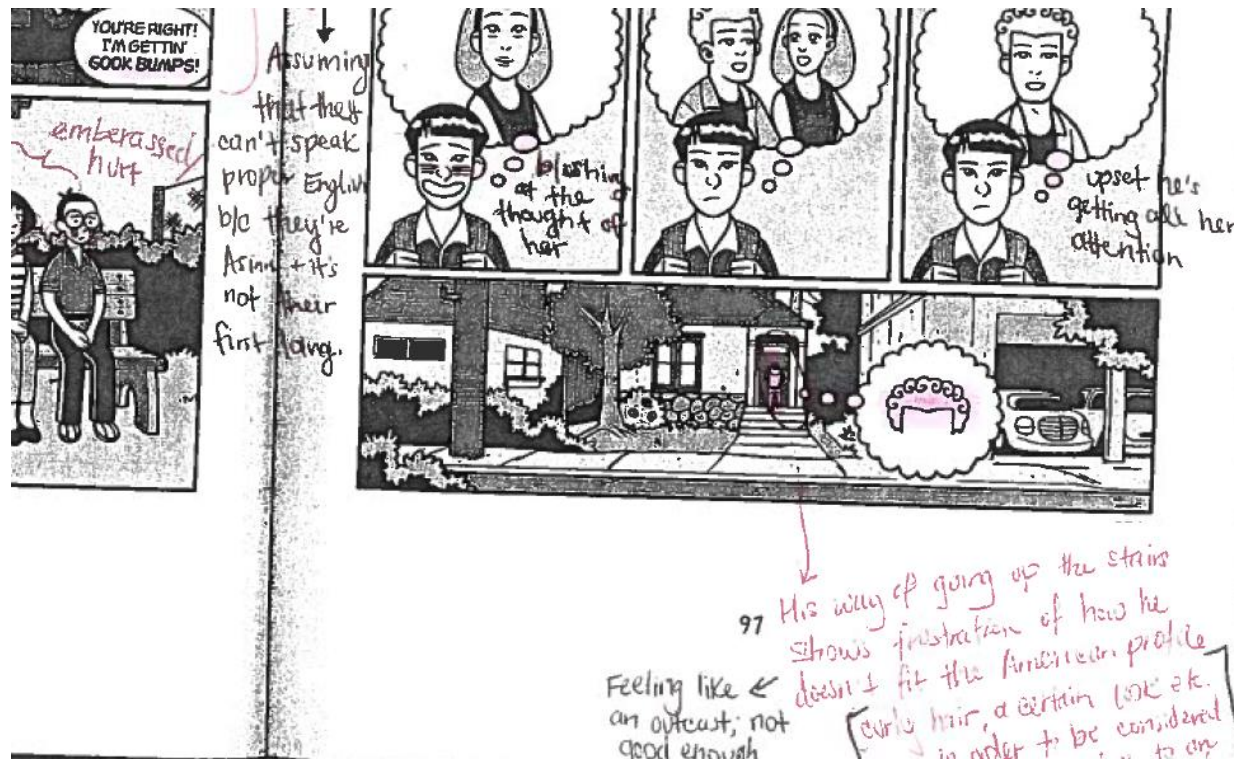 YOU'RE RIGHT!
I'M GETTIN'
GOOK BUMPS!
emberassed
hurt
Assuming
that they
can't speak
proper English
b/c they're
Asian + it's
not their
first lang.
blushing
at the
thought of
her
upset he's
getting all her
attention
97
His way of going up the stairs
shows frustration of how he
doesn't fit the American profile
curly hair, a certain look etc.
in order to be considered
to an
Feeling like
an outcast; not
good enough